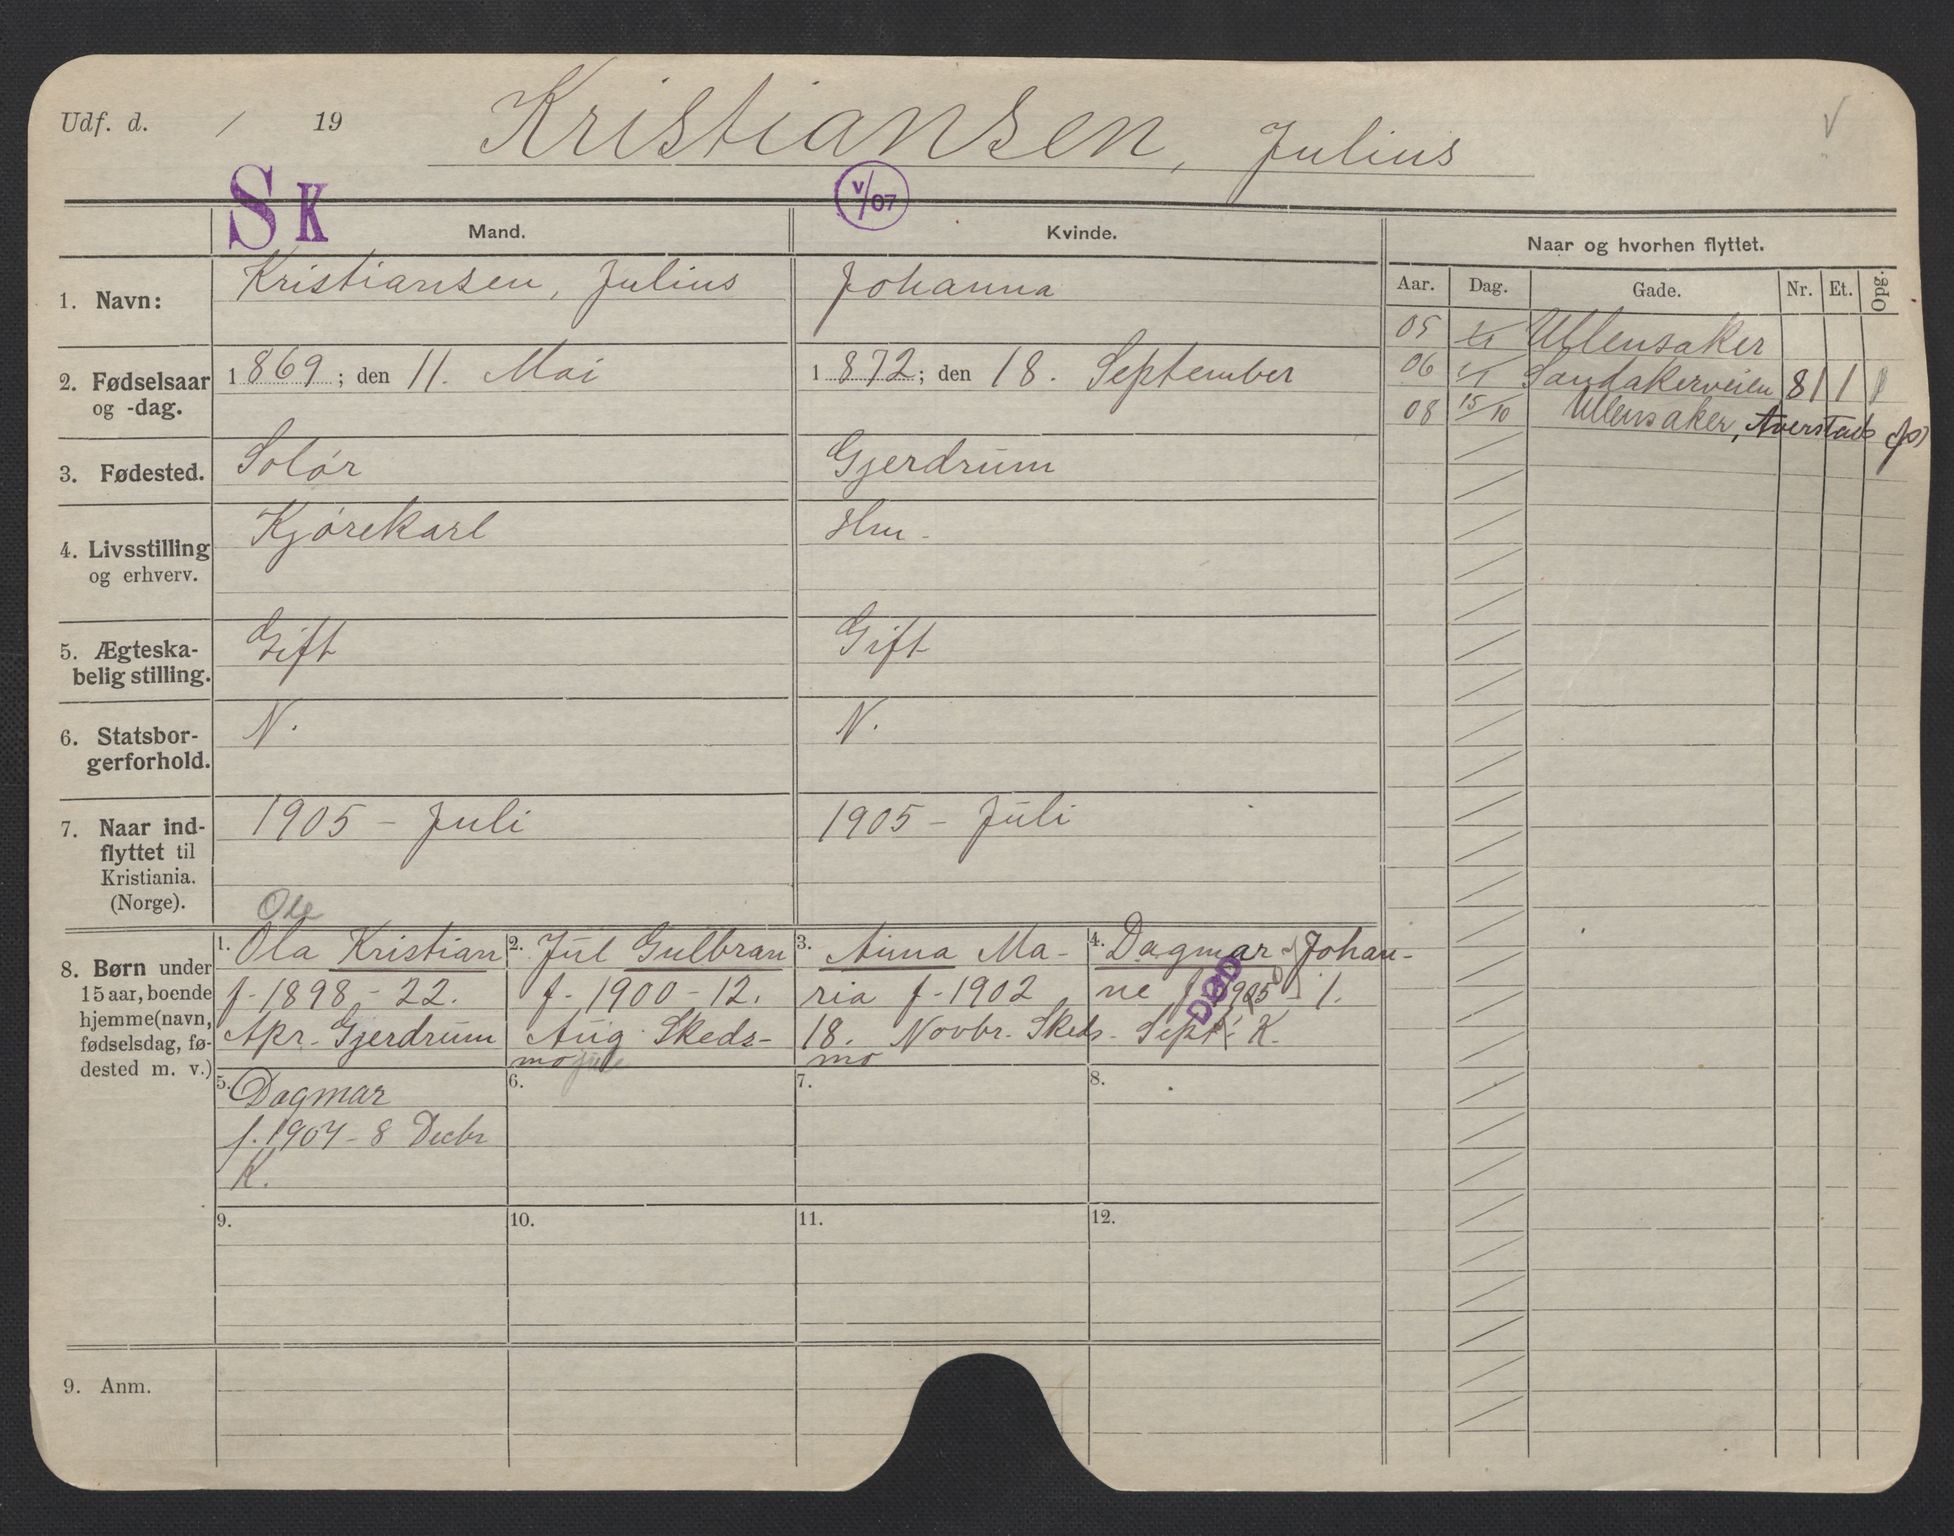 Udf. d. / 19 Kristiansen, Julius V
S K V/07
Mand. Kvinde. Naar og hvorhen flyttet.
Aar. Dag. Gade. Nr. Et. Opg.
1. Navn: Kristiansen, Julius Johanna
05 Ullensaker
2. Fødselsaar og -dag. 1869; den 11. Mai 1872; den 18. September
06 Sandakerveien 8 1 1 1
08 15/10 Ullensaker, Averstad
3. Fødested. Solør Gjerdrum
4. Livsstilling og erhverv. Kjørekarl Hru.
5. Ægteska-
belig stilling. Gift Gift
6. Statsbor-
gerforhold. N. N.
7. Naar ind-
flyttet til
Kristiania.
(Norge). 1905 - Juli 1905 - Juli
8. Børn under
15 aar, boende
hjemme (navn,
fødselsdag, fø-
dested m. v.)
Ole
1. Ola Kristian
f. 1898 - 22.
Apr. Gjerdrum
2. Jul Gulbran
f. 1900 - 12.
Aug. Skeds-
mo
3. Anna Ma-
ria f. 1902
18. Novbr. Skeds-
mo
4. Dagmar Johan-
ne f 1905 1.
Sept. K.
DØD
5. Dagmar
f. 1907 - 8 Decbr
K.
6.
7.
8.
9.
10.
11.
12.
9. Anm.